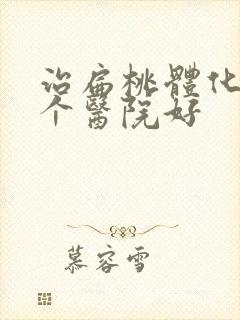 治扁桃體化
个醫院好
慕容雪